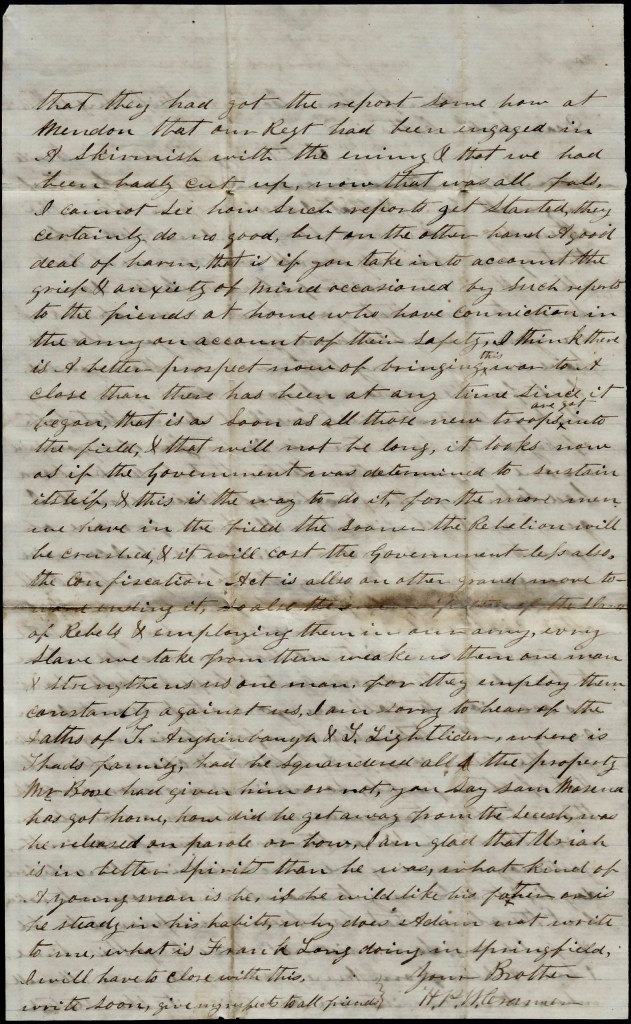 that they had got the report some how at
Mendon that our Regt had been engaged in
A Skirmish with the enimy & that we had
been badly cut up, now that was all fals,
I cannot see how such reports get started, they
certainly do no good, but on the other hand A good
deal of harm, that is if you take in to account the
grief & anxiety of mind occasioned by such reports
to the friends at home who have connection in
the army on account of their safety, I think there
is A better prospect now of bringing this war to A
close than there has been at any time since it
began, that is as soon as all those new troops are got into
the field, & that will not be long, it looks now
as if the Government was determined to sustain
itself, & this is the way to do it, for the more men
we have in the field the sooner the Rebelion will
be crushed, & it will cost the Government less also,
the Confiscation Act is allso an other grand move to-
ending it, so also the of the slaves
of Rebels & employing them in our army, evry
slave we take from them weakens them one man
& strengthens us one man, for they employ them
constantly against us, I am sorry to hear of the
deaths of T. & T. Lightlider, where is
Thads family, had he squandered all the property
Mr Boose had given him or not, you say Sam
has got home, how did he get away from the Secesh, was
he released on parole or how, I am glad that Uriah
is in better spirits than he was, what kind of
A young man is he, is he wild like his father or is
he steady in his habits, why does Adam not write
to me, what is Frank Long doing in Springfield,
I will have to close with this, Your Brother
write soon, give my respects to all friends H. P. W. Cramer